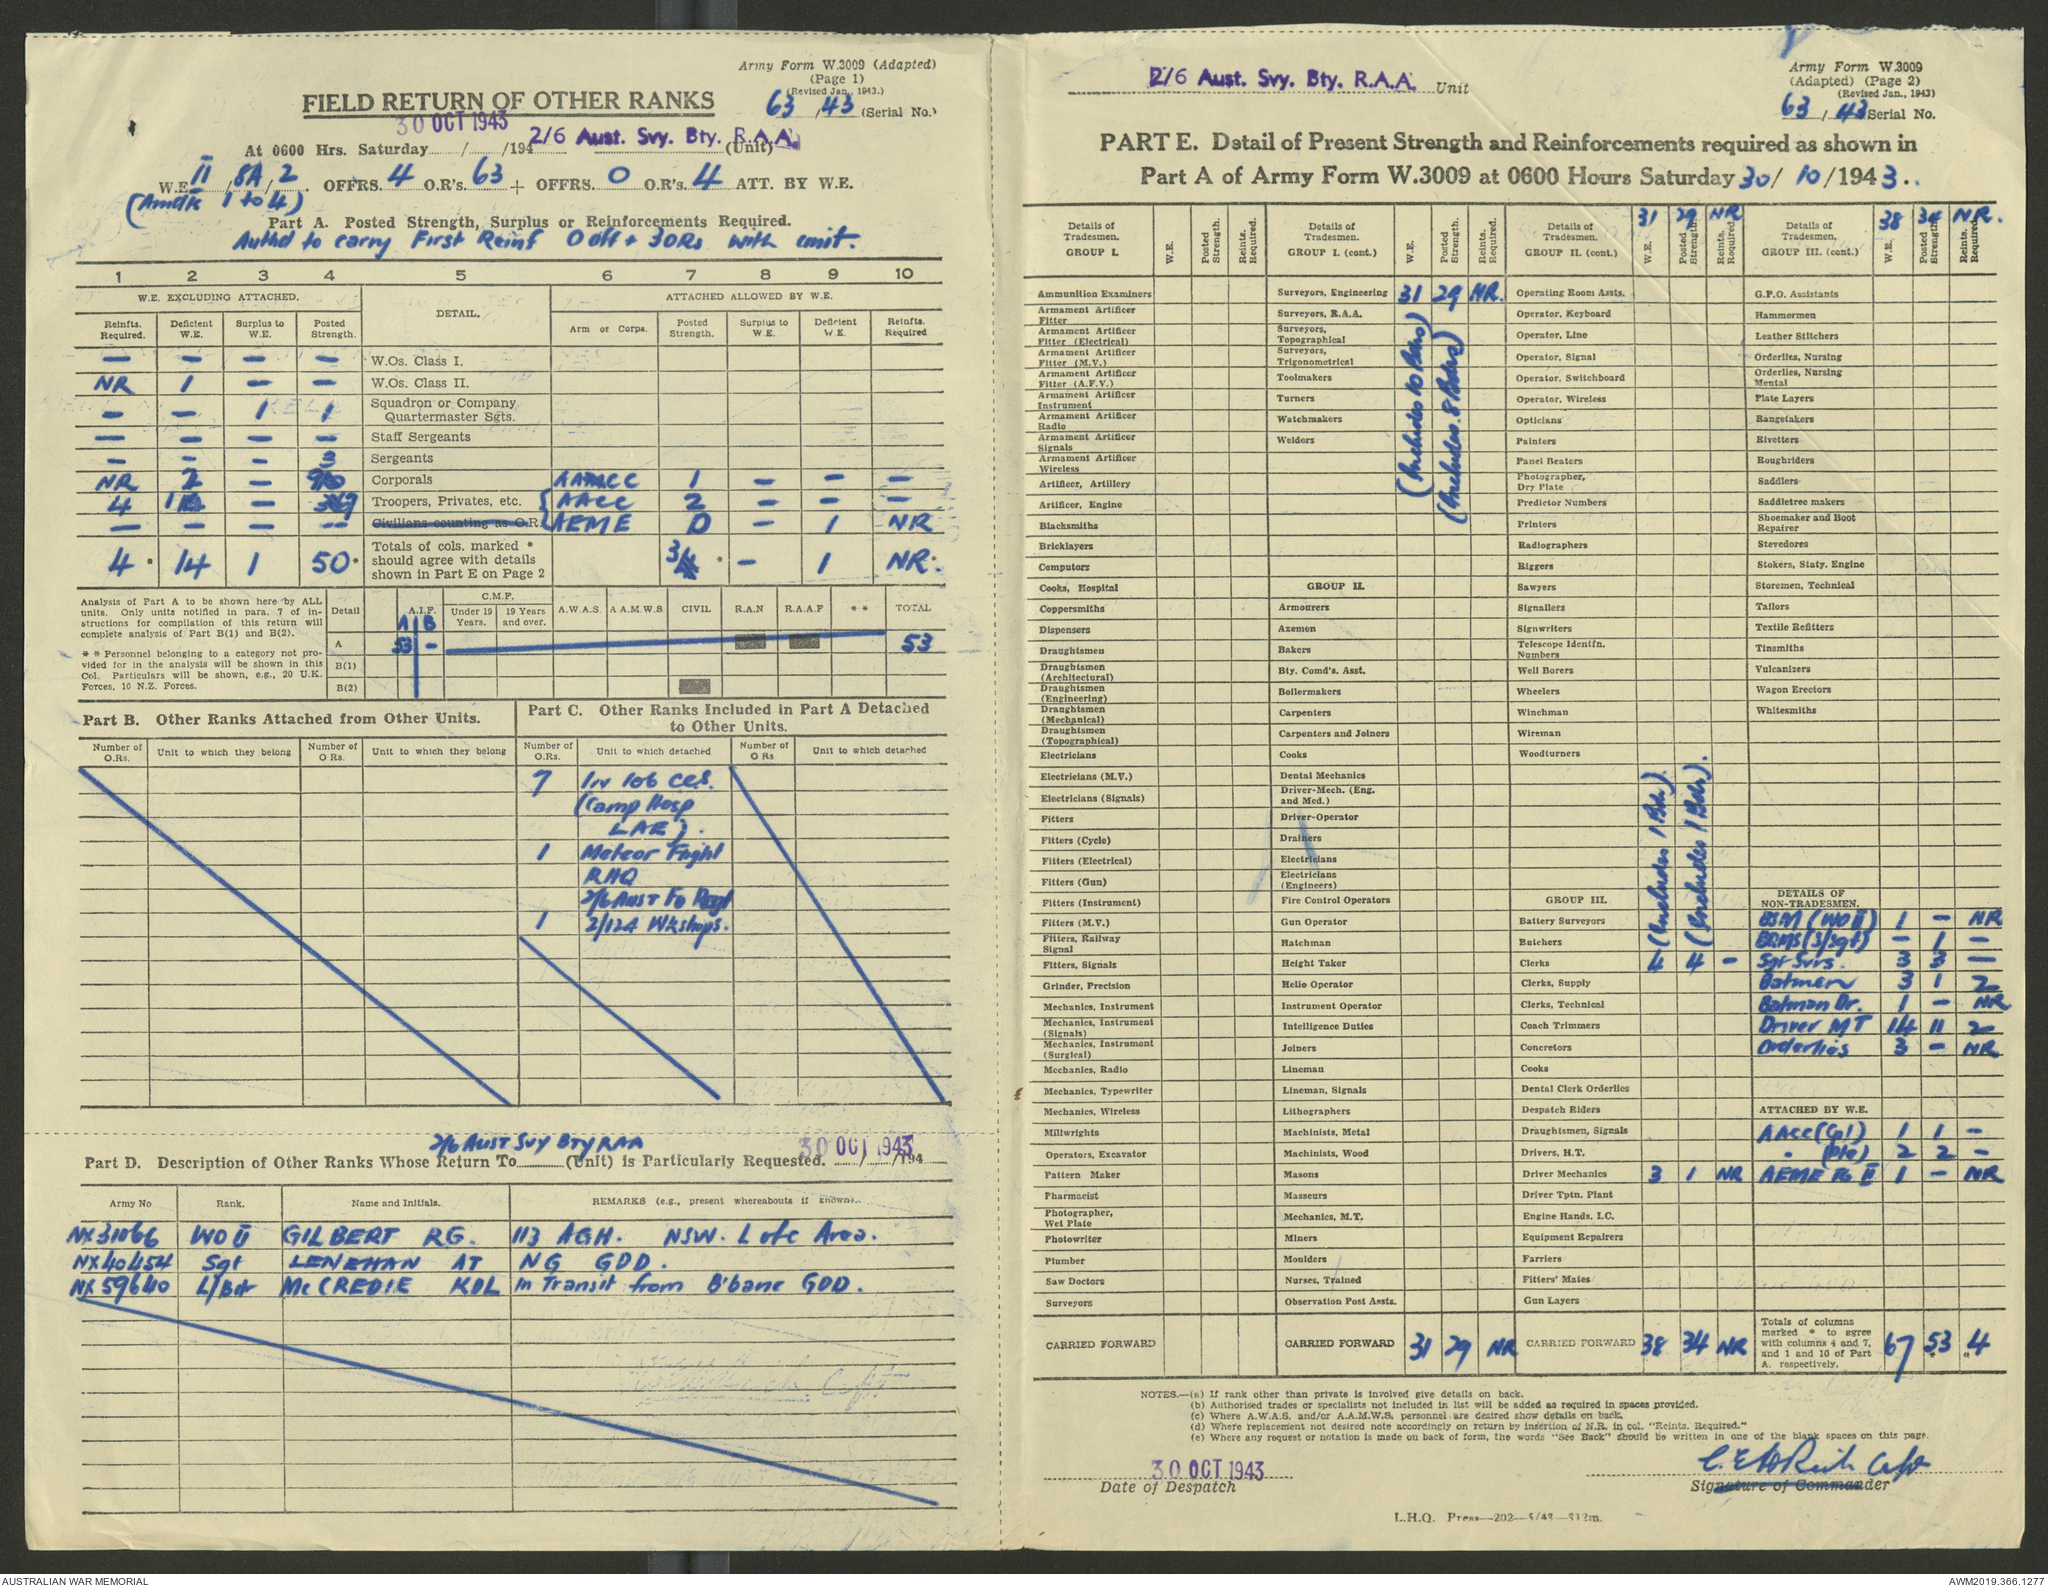 Army Form W.3009 (Adapted)
(Page 1)
(Revised Jan., 1943.)
FIELD RETURN OF OTHER RANKS
63 / 43 (Serial No.)
30 OCT 1943
2/6 Aust. Svy. Bty. R.A.A.
At 0600 Hrs. Saturday / /194 (Unit)
W.E. II / 8A / 2 . OFFRS. 4 O.R's. 63 + OFFRS. 0 O.R's. 4 ATT. BY W.E.
(Amdts 1 to 4)
Part A. Posted Strength, Surplus or Reinforcements Required.
Authd to carry First Reinf 0 off + 3 ORs with unit.
1 2 3 4 5 6 7 8 9 10
W.E. EXCLUDING ATTACHED. DETAIL. ATTACHED ALLOWED BY W.E.
Reinfts. Required. Deficient W.E. Surplus to W.E. Posted Strength. Arm or Corps. Posted Strength. Surplus to W.E. Deficient W.E. Reinfts. Required
— — — — W.Os. Class I.
NR 1 — — W.Os. Class II.
— — 1 1 Squadron or Company Quartermaster Sgts.
— — — — Staff Sergeants
— — — 3 Sergeants
NR 2 — Corporals AAMCC 1 — — —
4 — Troopers, Privates, etc. AACC 2 — — —
— — — — Civilians counting as O.R. AEME 0 — 1 NR
4 * 14 1 50 * Totals of cols. marked * should agree with details shown in Part E on Page 2 3 * — 1 NR.
Analysis of Part A to be shown here by ALL
units. Only units notified in para. 7 of in-
structions for compilation of this return will
complete analysis of Part B(1) and B(2).
* * Personnel belonging to a category not pro-
vided for in the analysis will be shown in this
Col. Particulars will be shown, e.g., 20 U.K.
Forces, 10 N.Z. Forces.
Detail A.I.F. C.M.F. Under 19 Years. 19 Years and over. A.W.A.S. A.A.M.W.S CIVIL R.A.N R.A.A.F * * TOTAL
A B
A 53 — 53
B(1)
B(2)
Part B. Other Ranks Attached from Other Units.
Part C. Other Ranks Included in Part A Detached to Other Units.
Number of O.Rs. Unit to which they belong Number of O Rs. Unit to which they belong Number of O.Rs. Unit to which detached Number of O Rs Unit to which detached
7 In 106 CCS.
(Camp Hosp
LAE).
1 Meteor Flight
RHQ
2/6 AUST FD Regt
1 2/124 Wkshops.
2/6 AUST SVY BTY RAA 30 OCT 1943
Part D. Description of Other Ranks Whose Return To (Unit) is Particularly Requested. / /194
Army No Rank. Name and Initials. REMARKS (e.g., present whereabouts if known).
NX31066 WO II GILBERT RG. 113 AGH. NSW. L of C Area.
NX40454 Sgt LENEHAN AT NG GDD.
NX59640 L/Bdr McCREDIE KDL In Transit from B'bane GDD.
2/6 Aust. Svy. Bty. R.A.A. Unit
Army Form W.3009
(Adapted) (Page 2)
(Revised Jan., 1943)
63 / 43 Serial No.
PART E. Detail of Present Strength and Reinforcements required as shown in
Part A of Army Form W.3009 at 0600 Hours Saturday 30/ 10 /1943..
Details of Tradesmen. GROUP I. W.E. Posted Strength. Reints. Required.
Ammunition Examiners
Armament Artificer Fitter
Armament Artificer Fitter (Electrical)
Armament Artificer Fitter (M.V.)
Armament Artificer Fitter (A.F.V.)
Armament Artificer Instrument
Armament Artificer Radio
Armament Artificer Signals
Armament Artificer Wireless
Artificer, Artillery
Artificer, Engine
Blacksmiths
Bricklayers
Computors
Cooks, Hospital
Coppersmiths
Dispensers
Draughtsmen
Draughtsmen (Architectural)
Draughtsmen (Engineering)
Draughtsmen (Mechanical)
Draughtsmen (Topographical)
Electricians
Electricians (M.V.)
Electricians (Signals)
Fitters
Fitters (Cycle)
Fitters (Electrical)
Fitters (Gun)
Fitters (Instrument)
Fitters (M.V.)
Fitters, Railway Signal
Fitters, Signals
Grinder, Precision
Mechanics, Instrument
Mechanics, Instrument (Signals)
Mechanics, Instrument (Surgical)
Mechanics, Radio
Mechanics, Typewriter
Mechanics, Wireless
Millwrights
Operators, Excavator
Pattern Maker
Pharmacist
Photographer, Wet Plate
Photowriter
Plumber
Saw Doctors
Surveyors
CARRIED FORWARD
Details of Tradesmen. GROUP I. (cont.) W.E. Posted Strength. Reints. Required.
Surveyors, Engineering 31 29 NR.
Surveyors, R.A.A.
Surveyors, Topographical
Surveyors, Trigonometrical
Toolmakers
Turners
Watchmakers
Welders
(Includes 10 Bdrs)
(Includes 8 Bdrs)
GROUP II.
Armourers
Axemen
Bakers
Bty. Comd's. Asst.
Boilermakers
Carpenters
Carpenters and Joiners
Cooks
Dental Mechanics
Driver-Mech. (Eng. and Med.)
Driver-Operator
Drainers
Electricians
Electricians (Engineers)
Fire Control Operators
Gun Operator
Hatchman
Height Taker
Helio Operator
Instrument Operator
Intelligence Duties
Joiners
Lineman
Lineman, Signals
Lithographers
Machinists, Metal
Machinists, Wood
Masons
Masseurs
Mechanics, M.T.
Miners
Moulders
Nurses, Trained
Observation Post Assts.
CARRIED FORWARD 31 29 NR
Details of Tradesmen. GROUP II. (cont.) W.E. 31 Posted Strength. 29 Reints. Required. NR
Operating Room Assts.
Operator, Keyboard
Operator, Line
Operator, Signal
Operator, Switchboard
Operator, Wireless
Opticians
Painters
Panel Beaters
Photographer, Dry Plate
Predictor Numbers
Printers
Radiographers
Riggers
Sawyers
Signallers
Signwriters
Telescope Identfn. Numbers
Well Borers
Wheelers
Winchman
Wireman
Woodturners
(Includes 1 Bdr).
(Includes 1 Bdr).
GROUP III.
Battery Surveyors
Butchers
Clerks 4 4 —
Clerks, Supply
Clerks, Technical
Coach Trimmers
Concretors
Cooks
Dental Clerk Orderlies
Despatch Riders
Draughtsmen, Signals
Drivers, H.T.
Driver Mechanics 3 1 NR
Driver Tptn. Plant
Engine Hands, I.C.
Equipment Repairers
Farriers
Fitters' Mates
Gun Layers
CARRIED FORWARD 38 34 NR
Details of Tradesmen. GROUP III. (cont.) W.E. 38 Posted Strength. 34 Reints. Required. NR.
G.P.O. Assistants
Hammermen
Leather Stitchers
Orderlies, Nursing
Orderlies, Nursing Mental
Plate Layers
Rangetakers
Rivetters
Roughriders
Saddlers
Saddletree makers
Shoemaker and Boot Repairer
Stevedores
Stokers, Staty. Engine
Storemen, Technical
Tailors
Textile Refitters
Tinsmiths
Vulcanizers
Wagon Erectors
Whitesmiths
DETAILS OF NON-TRADESMEN.
BSM (WO II) 1 — NR
BQMS (S/Sgt) — 1 —
Sgt Svrs. 3 3 —
Batmen 3 1 2
Batman Dr. 1 — NR
Driver MT 14 11 2
Orderlies 3 — NR
ATTACHED BY W.E.
AACC (Cpl) 1 1 —
" (Pte) 2 2 —
AEME II 1 — NR
Totals of columns marked * to agree with columns 4 and 7, and 1 and 10 of Part A, respectively. 67 53 * 4 *
NOTES.—(a) If rank other than private is involved give details on back.
(b) Authorised trades or specialists not included in list will be added as required in spaces provided.
(c) Where A.W.A.S. and/or A.A.M.W.S. personnel are desired show details on back.
(d) Where replacement not desired note accordingly on return by insertion of N.R. in col. "Reints. Required."
(e) Where any request or notation is made on back of form, the words "See Back" should be written in one of the blank spaces on this page.
30 OCT 1943
Date of Despatch
Capt
Signature of Commander
L.H.Q. Press—202—5/43—312m.
AUSTRALIAN WAR MEMORIAL
AWM2019.366.1277